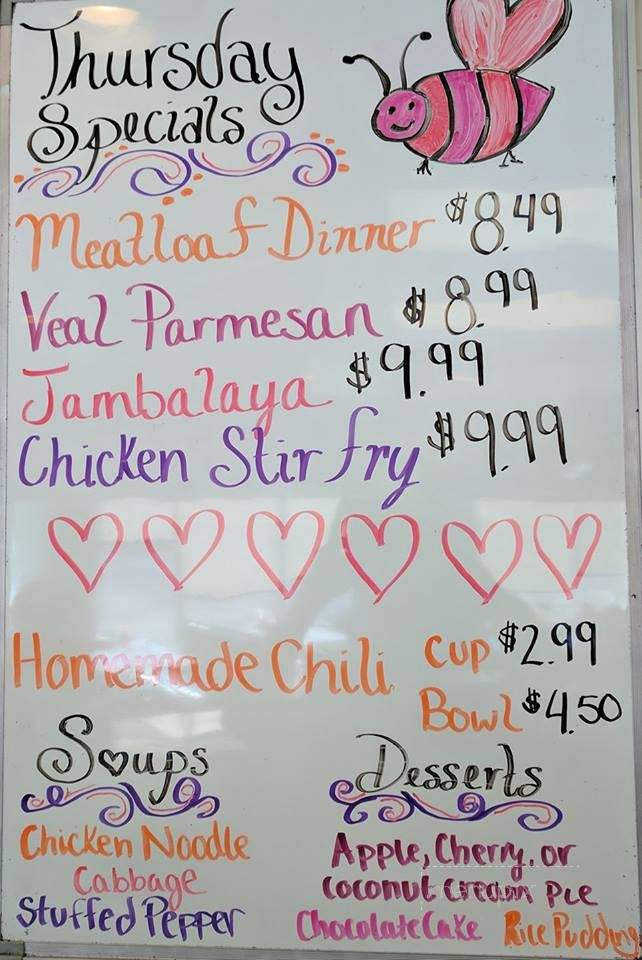 Thursday
Specials
Meatloaf Dinner $8.49
Veal Parmesan $8.99
Jambalaya $9.99
Chicken Stir fry $9.99
Homemade Chili cup $2.99
Bowl $4.50
Soups
Desserts
Chicken Noodle
Cabbage
Stuffed Pepper
Apple, Cherry, or
Coconut Cream Pie
Chocolate Cake Rice Pudding